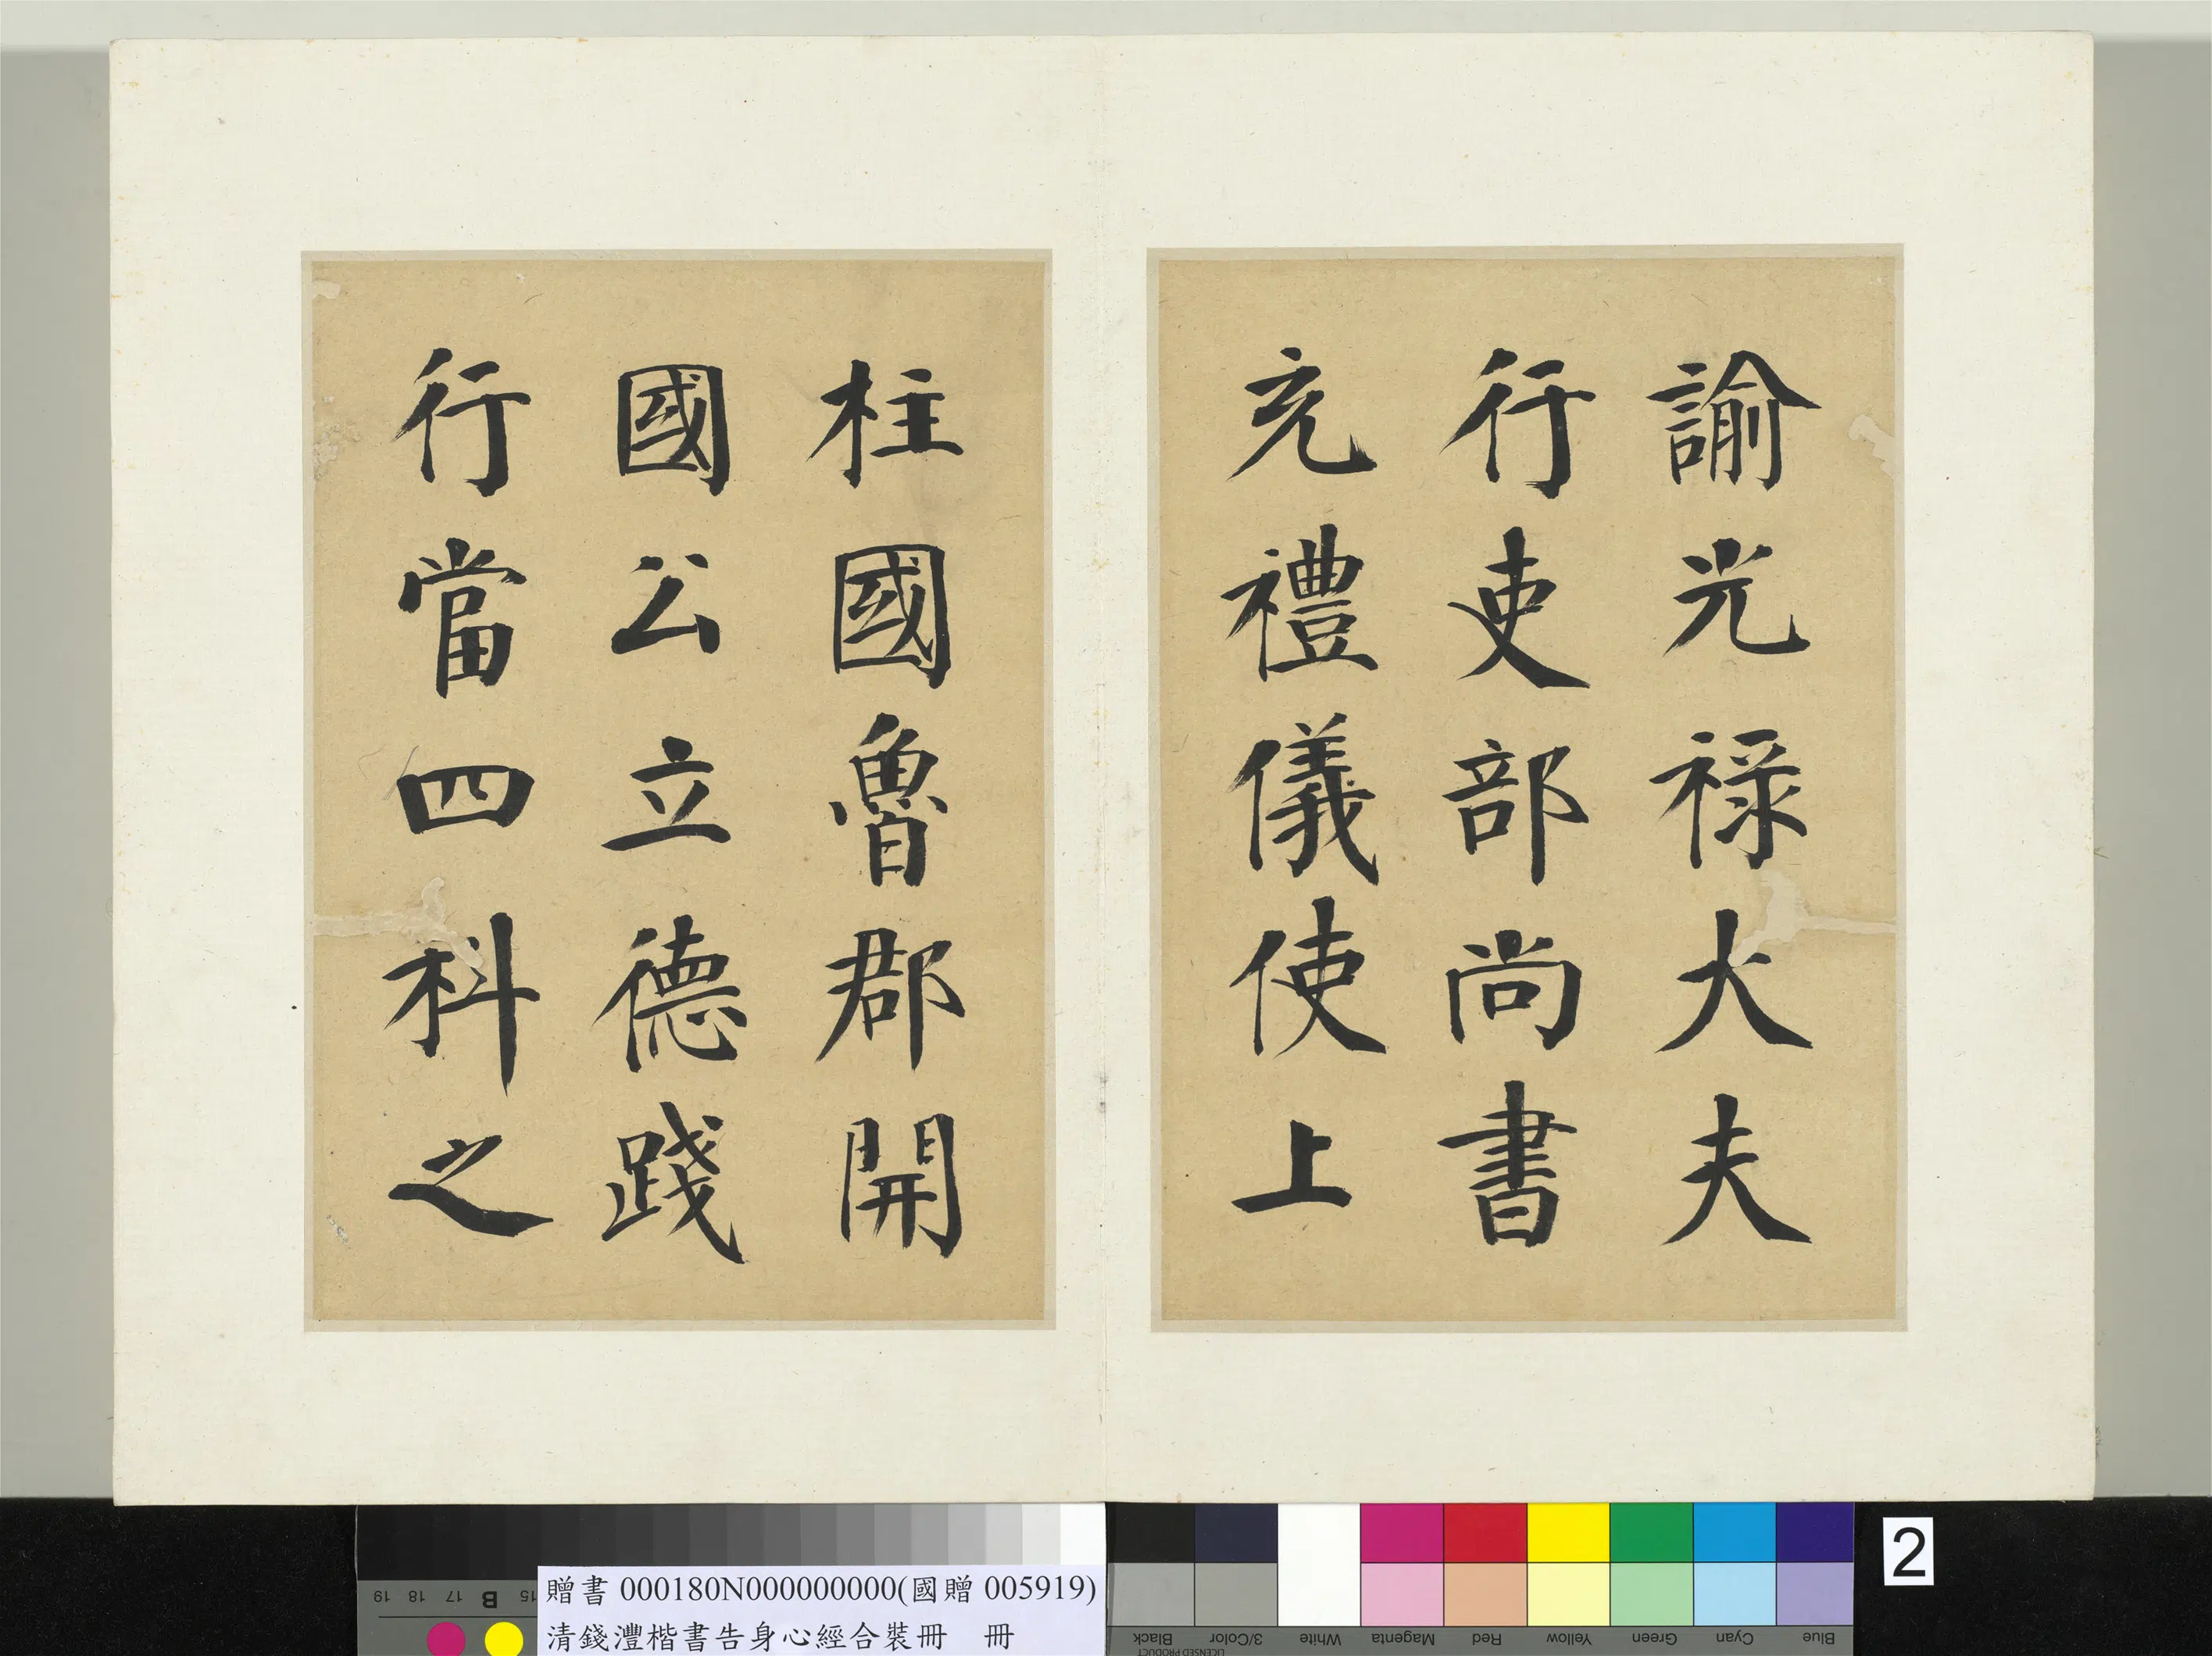 諭光祿大夫
行吏部尚書
充禮儀使上
柱國魯郡開
國公立德踐
行當四科之
贈書 000180N000000000(國贈 005919)
清錢灃楷書告身心經合裝冊 冊
2
19 18 17 B 15
Black 3/Color White Magenta Red Yellow Green Cyan Blue
LICENSED PRODUCT